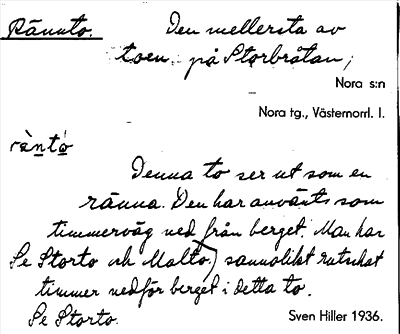 Rännto. Den mellersta av
toen på Storbråtan;
Nora s:n
Nora tg., Västernorrl. l.
rä̀ntó
Denna to ser ut som en
ränna. Den har använts som
timmerväg ned från berget. Man har
Se Storto och Malto.) sannolikt rutschat
timmer nedför berget i detta to.
Se Storto.
Sven Hiller 1936.